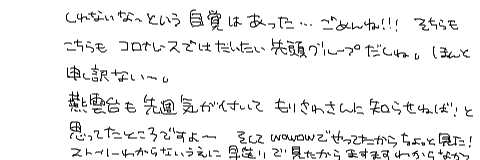 しれないな〜という自覚はあった…ごめんね!!! そちらも
こちらも コロナレースではだいたい先頭グループだしね。ほんと
申し訳ない〜。
紫雲台も先週気が付いて もりさわさんに知らせねば!と
思ってたところですよ〜 そしてwowowでやってたからちょっと見た!
ストーリーわからないうえに早送りで見たからますますわからなかっ